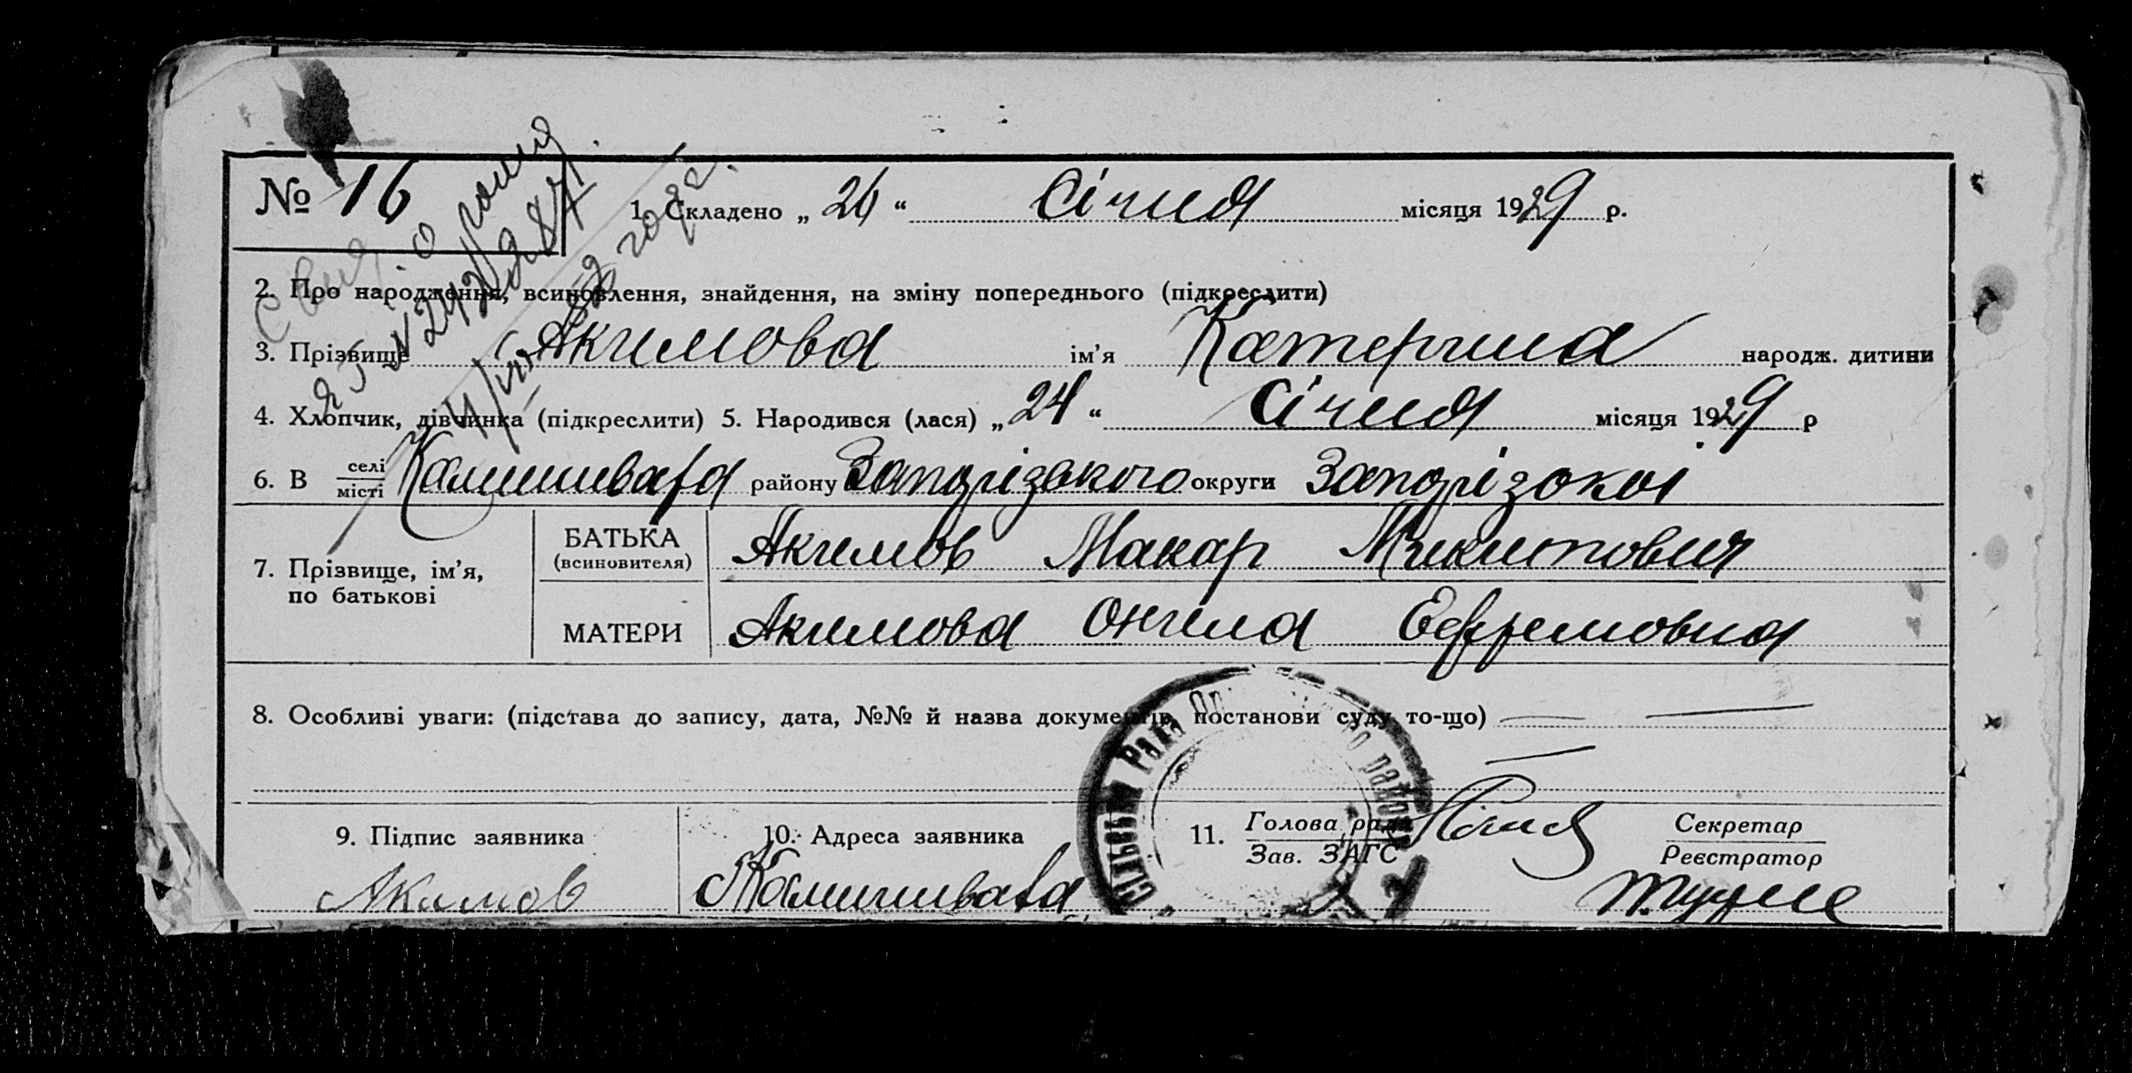 № 16
1. Складено „ 26 “ Січня місяця 1929 р.
2. Про народження, всиновлення, знайдення, на зміну попереднього (підкреслити)
3. Прізвище Акимова ім’я Катерина народж. дитини
4. Хлопчик, дівчинка (підкреслити) 5. Народився (лася) „ 24 “ Січня місяця 1929 р
6. В селі місті Камишивата району Запорізького округи Запорізокої
7. Прізвище, ім’я, по батькові
БАТЬКА (всиновителя) Акимов Макар Микитович
МАТЕРИ Акимова Онгела Ефремовна
8. Особливі уваги: (підстава до запису, дата, №№ й назва документів, постанови суду то-що)
9. Підпис заявника
Акимов
10. Адреса заявника
Камишивата
11. Голова ради
Зав. ЗАГС
Секретар
Реєстратор
Сільська Рада району